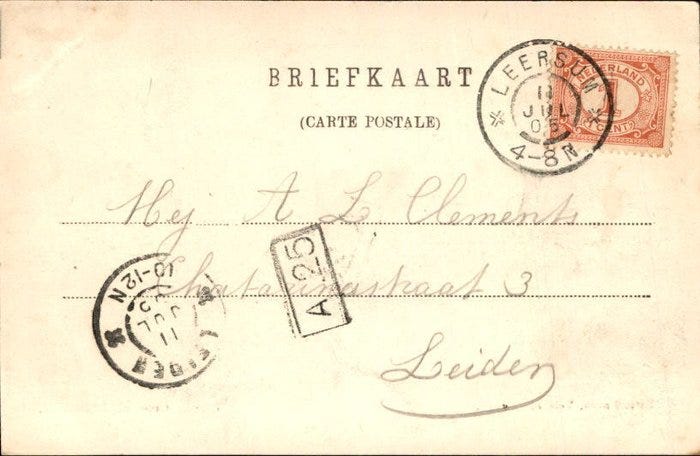 BRIEFKAART
(CARTE POSTALE)
LEERSUM
11
JUL
05
4-8 N
NEDERLAND
CENT
Mej A L Clements
straat 3
Leiden
A 25
LEIDEN
11
JUL
05
10-12N